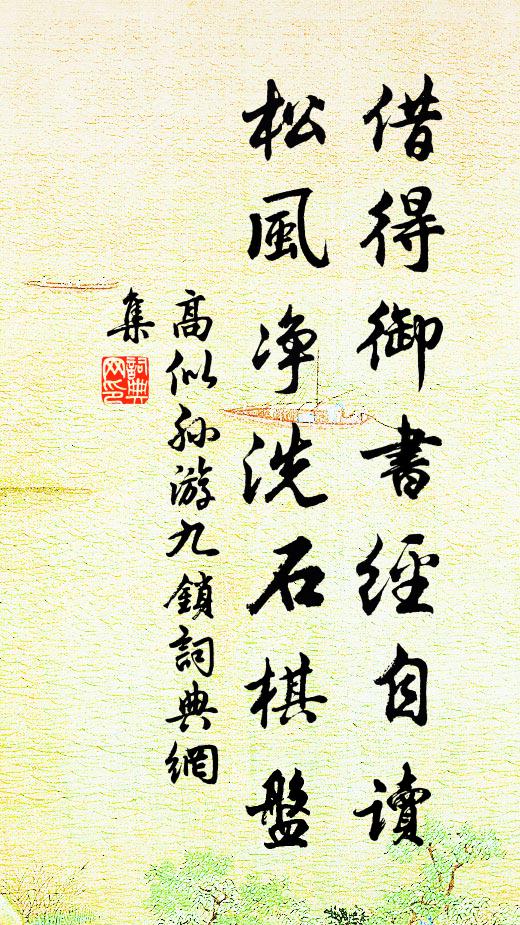 借得御書經自讀
松風净洗石棋盤
高似孙游九鎖詞典網
集
詞典網印